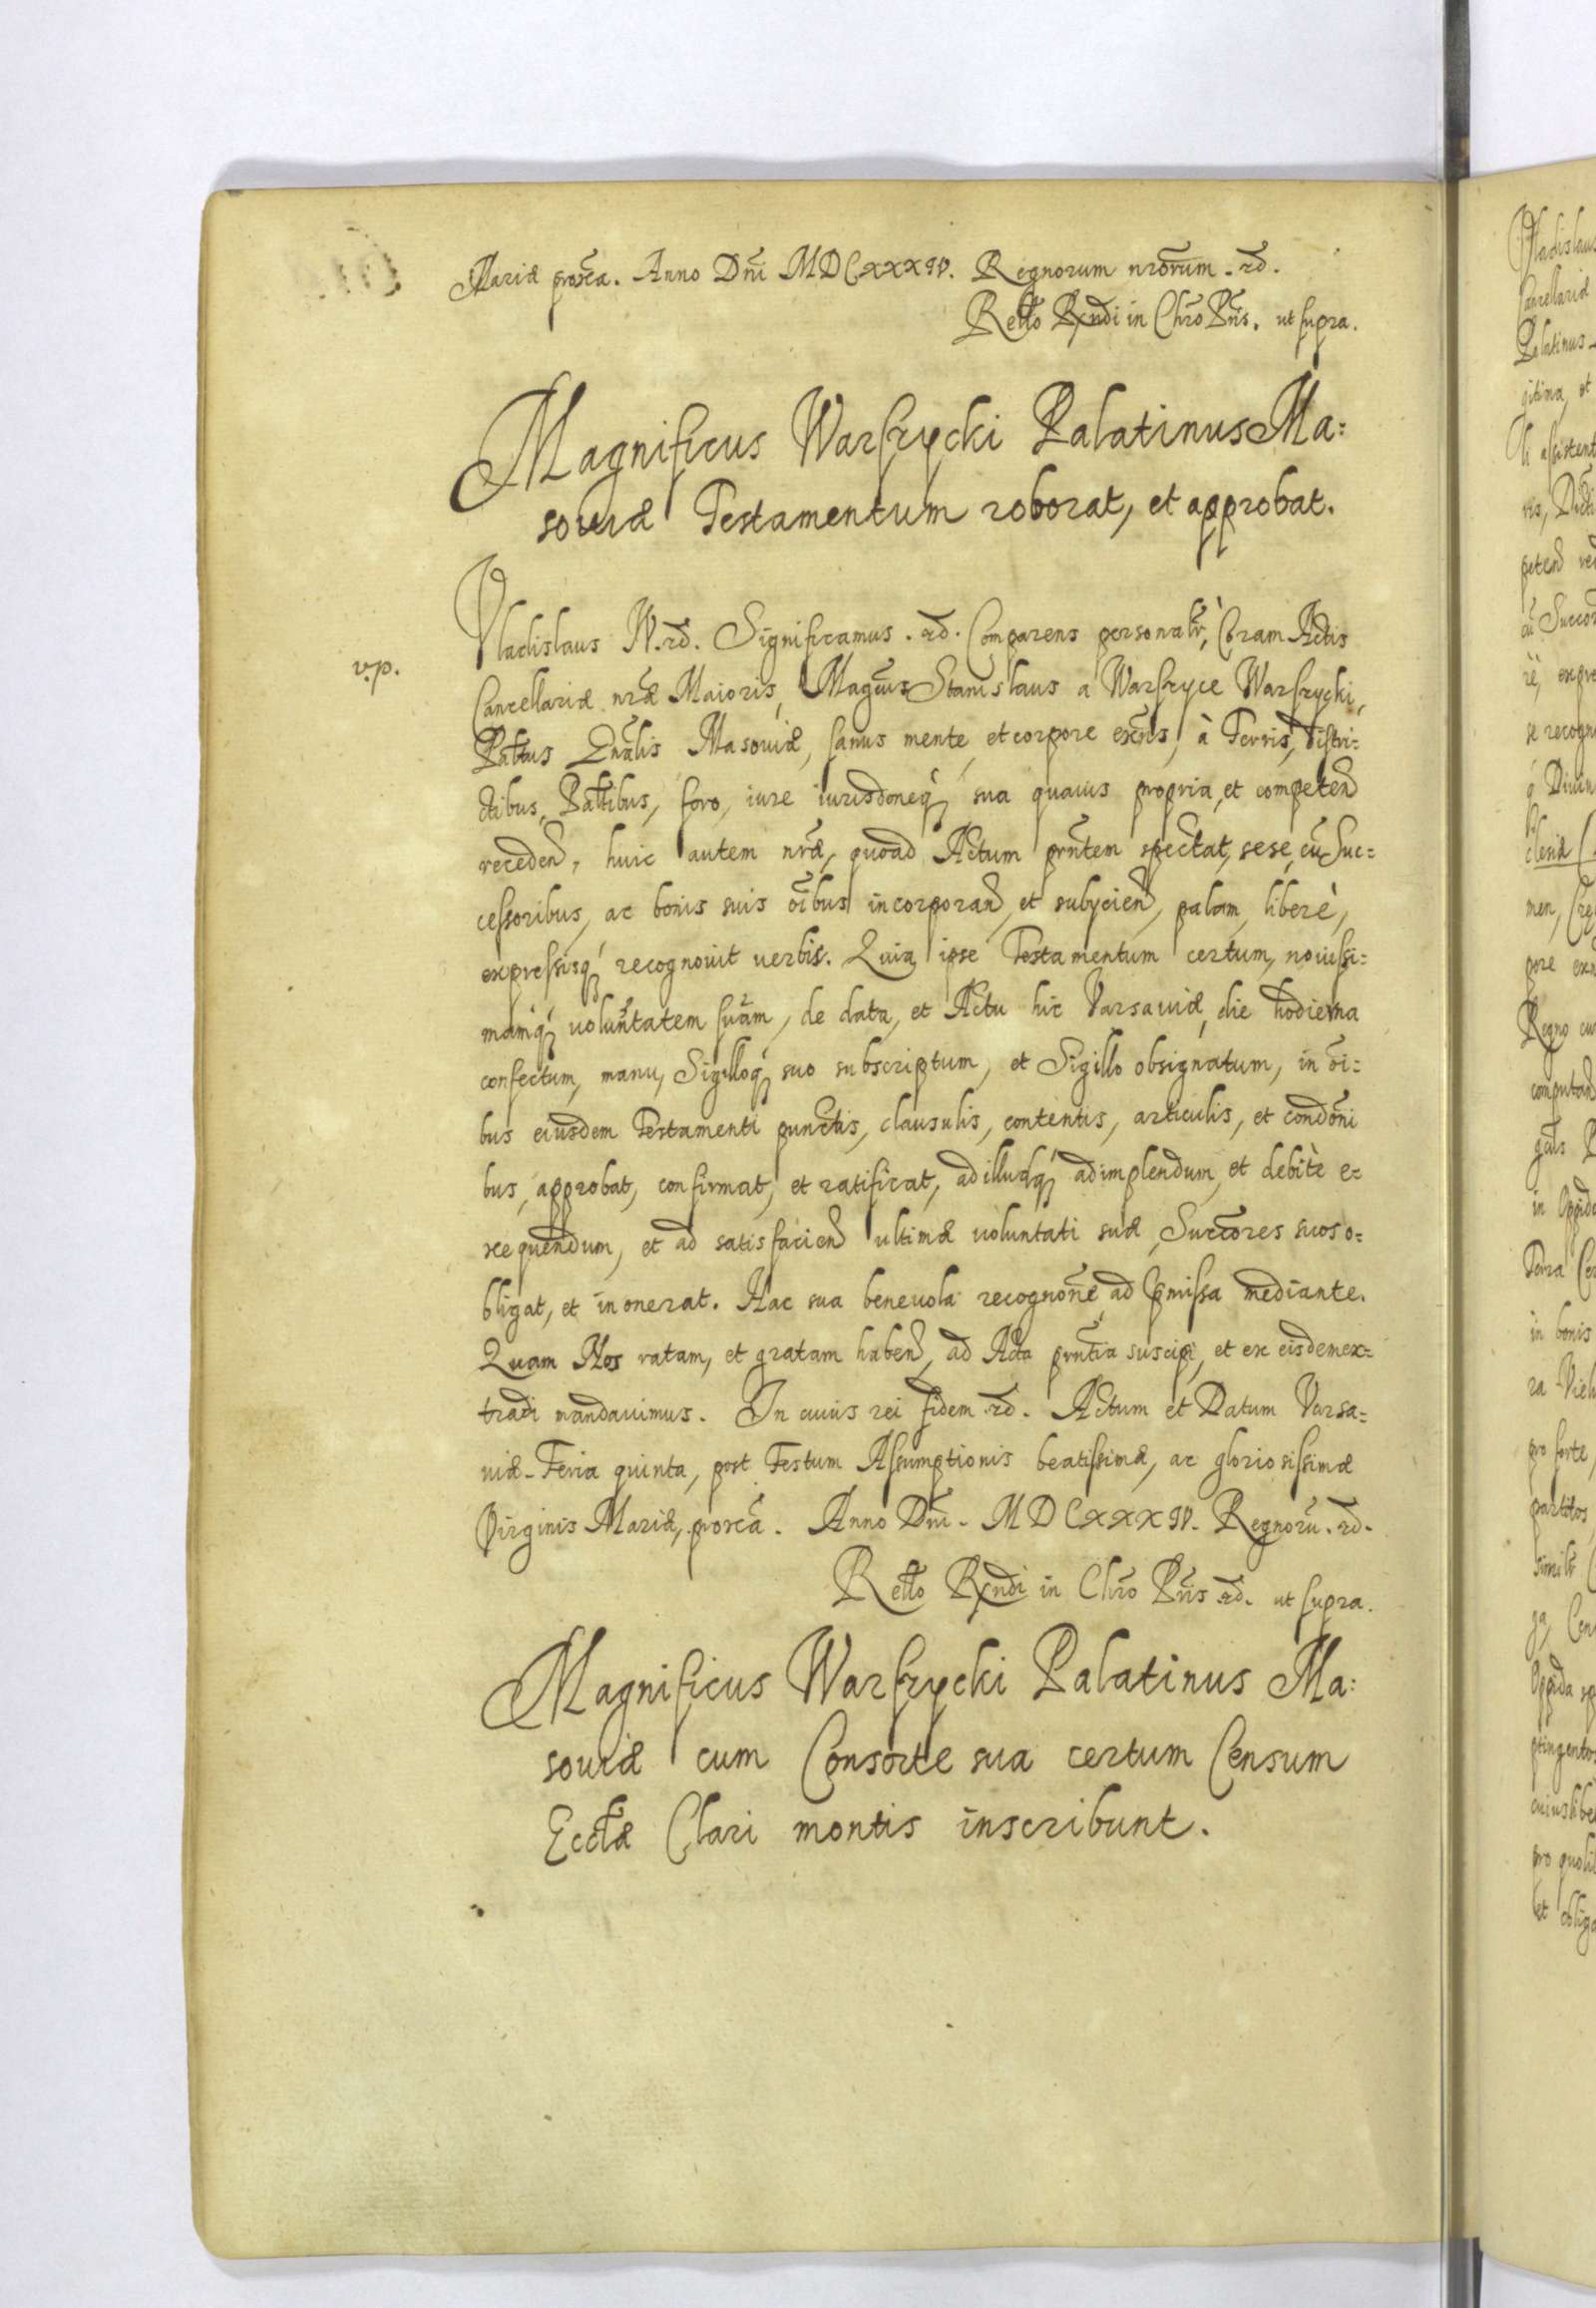 Mariæ prox̃a. Anno Dñi MDCXXXIV. Regnorum nrõrum. etc.
Relt̃o Rx̃ndi in Chr̃o Pr̃is. ut supra.
Magnificus Warszycki Palatinus Ma=
soviæ Testamentum roborat, et approbat.
v.p.
Vladislaus IV. etc. Significamus. etc. Comparens personalr̃, Coram Actis
Cancellariæ nr̃æ Maioris, Magc̃us Stanislaus a Warszyce Warszycki,
Palt̃nus Gñalis Masouiæ, sanus mente, et corpore exñs, à Terris, distri=
ctibus, Palt̃ibus, foro, iure iurisdoneq́ sua quauis propria, et competen̄
receden̄, huic autem nr̃æ, quoad Actum prñtem spectat, sese, cũ Suc=
cessoribus, ac bonis suis oĩbus incorporan̄, et subycien̄, palam, liberè,
expressisq́ recognouit uerbis. Quia ipse Testamentum certum, nouissi=
mamq́ voluntatem suam, de data, et Actu hic Varsauiæ, die hodierna
confectum, manu, Sigilloq́ suo subscriptum, et Sigillo obsignatum, in oĩ=
bus eiusdem Testamenti punctis, clausulis, contentis, articulis, et condõni
bus, approbat, confirmat, et ratificat, ad illudq́ adimplendum, et debitè e=
xequendum, et ad satisfacien̄ ultimæ uoluntati suæ, Succ̃ores suos o=
bligat, et inonerat. Hac sua beneuola recognõne ad p̃missa mediante.
Quam Nos ratam, et gratam haben̄, ad Acta prñtia suscipi, et ex eisdem ex=
tradi mandauimus. In cuius rei fidem etc. Actum et Datum Varsa=
uiæ Feria quinta, post Festum Assumptionis beatissimæ, ac gloriosissimæ
Virginis Mariæ, prox̃a. Anno Dñi. MDCXXXIV. Regnorũ. etc.
Relt̃o Rx̃ndi in Chr̃o Pr̃is etc. ut supra.
Magnificus Warszycki Palatinus Ma=
souiæ cum Consorte sua certum Censum
Eccl̃æ Clari montis inscribunt.